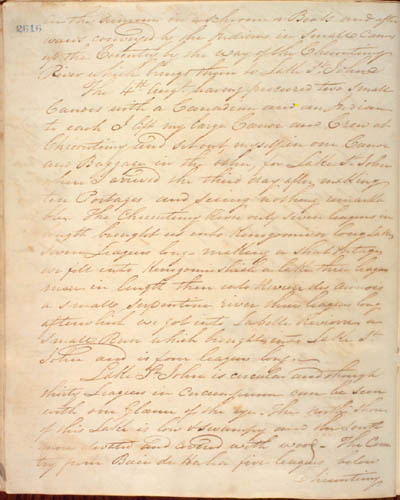 in the Summer in Schooners & Boats and after
2616
wards conveyed by the Indians in Small Canoes
up the Country by the way of the Chicoutimy
River which brings them to Lake St. John
The 4th Inst having procured two Small
Canoes with a Canadian and an Indian
to each I left my large Canoe and Crew at
Chicoutimy and set out myself in one Canoe
and Baggage in the other for Lake St. John
where I arrived the third day after making
ten Portages and seeing nothing remarka
ble. The Chicoutimy River only seven leagues in
length brought us into Kingomici long Lake
seven Leagues long making a Short Portage
we fell into Kingomishish a lake three leagues
in length then into River des
a small Serpentine river three leagues long
after which we got into Labelle Riviere a
Small River which brought into Lake St.
John and is four leagues long.
Lake St. John is circular and though
thirty Leagues in Circumference can be seen
with one Glance of the eye. The North Shore
of this Lake is low & swampy and the South
more elevated and covered with wood. The Coun
try from Baie de Ha ha five leagues below
Chicoutimy